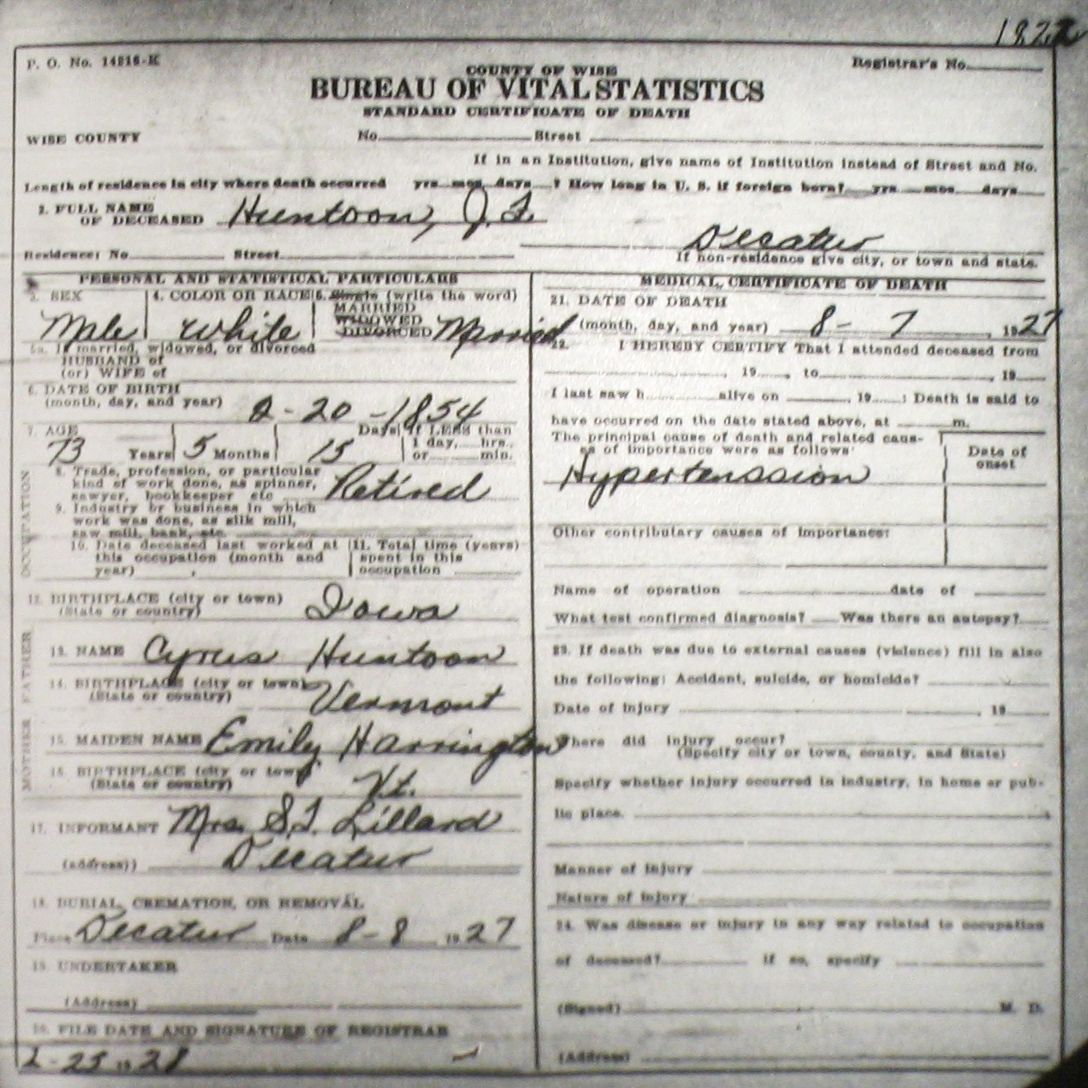 P. O. No. 14816-K
COUNTY OF WISE
Registrar's No.
BUREAU OF VITAL STATISTICS
STANDARD CERTIFICATE OF DEATH
WISE COUNTY No. Street
If in an Institution, give name of Institution instead of Street and No.
Length of residence in city where death occurred yrs mos days ? How long in U. S. if foreign born? yrs mos days
2. FULL NAME OF DECEASED Huntoon, J. F.
Residence: No Street Decatur
If non-residence give city, or town and state.
PERSONAL AND STATISTICAL PARTICULARS
3. SEX Male
4. COLOR OR RACE White
5. Single (write the word)
MARRIED
WIDOWED
DIVORCED Married
5a. If married, widowed, or divorced
HUSBAND of
(or) WIFE of
6. DATE OF BIRTH
(month, day, and year) 2-20-1854
7. AGE 73 Years 5 Months 15 Days If LESS than
1 day, hrs.
or min.
OCCUPATION
8. Trade, profession, or particular
kind of work done, as spinner,
sawyer, bookkeeper etc Retired
9. Industry or business in which
work was done, as silk mill,
saw mill, bank, etc.
10. Date deceased last worked at
this occupation (month and
year)
11. Total time (years)
spent in this
occupation
12. BIRTHPLACE (city or town)
(State or country) Iowa
FATHER
13. NAME Cyrus Huntoon
14. BIRTHPLACE (city or town)
(State or country) Vermont
MOTHER
15. MAIDEN NAME Emily Harrington
16. BIRTHPLACE (city or town)
(State or country) Vt.
17. INFORMANT Mrs. S.T. Lillard
(address)) Decatur
18. BURIAL, CREMATION, OR REMOVAL
Place Decatur Date 8-8 1927
19. UNDERTAKER
(Address)
20. FILE DATE AND SIGNATURE OF REGISTRAR
2-25 1928
MEDICAL CERTIFICATE OF DEATH
21. DATE OF DEATH
(month, day, and year) 8-7, 1927
22. I HEREBY CERTIFY That I attended deceased from
, 19, to, 19
I last saw h alive on , 19 ; Death is said to
have occurred on the date stated above, at m.
The principal cause of death and related caus-
es of importance were as follows:
Date of
onset
Hypertenssion
Other contributary causes of importance:
Name of operation date of
What test confirmed diagnosis? Was there an autopsy?
23. If death was due to external causes (violence) fill in also
the following: Accident, suicide, or homicide?
Date of injury 19
There did injury occur?
(Specify city or town, county, and State)
Specify whether injury occurred in industry, in home or pub-
lic place.
Manner of injury
Nature of injury
24. Was disease or injury in any way related to occupation
of deceased? If so, specify
(Signed) M. D.
(Address)